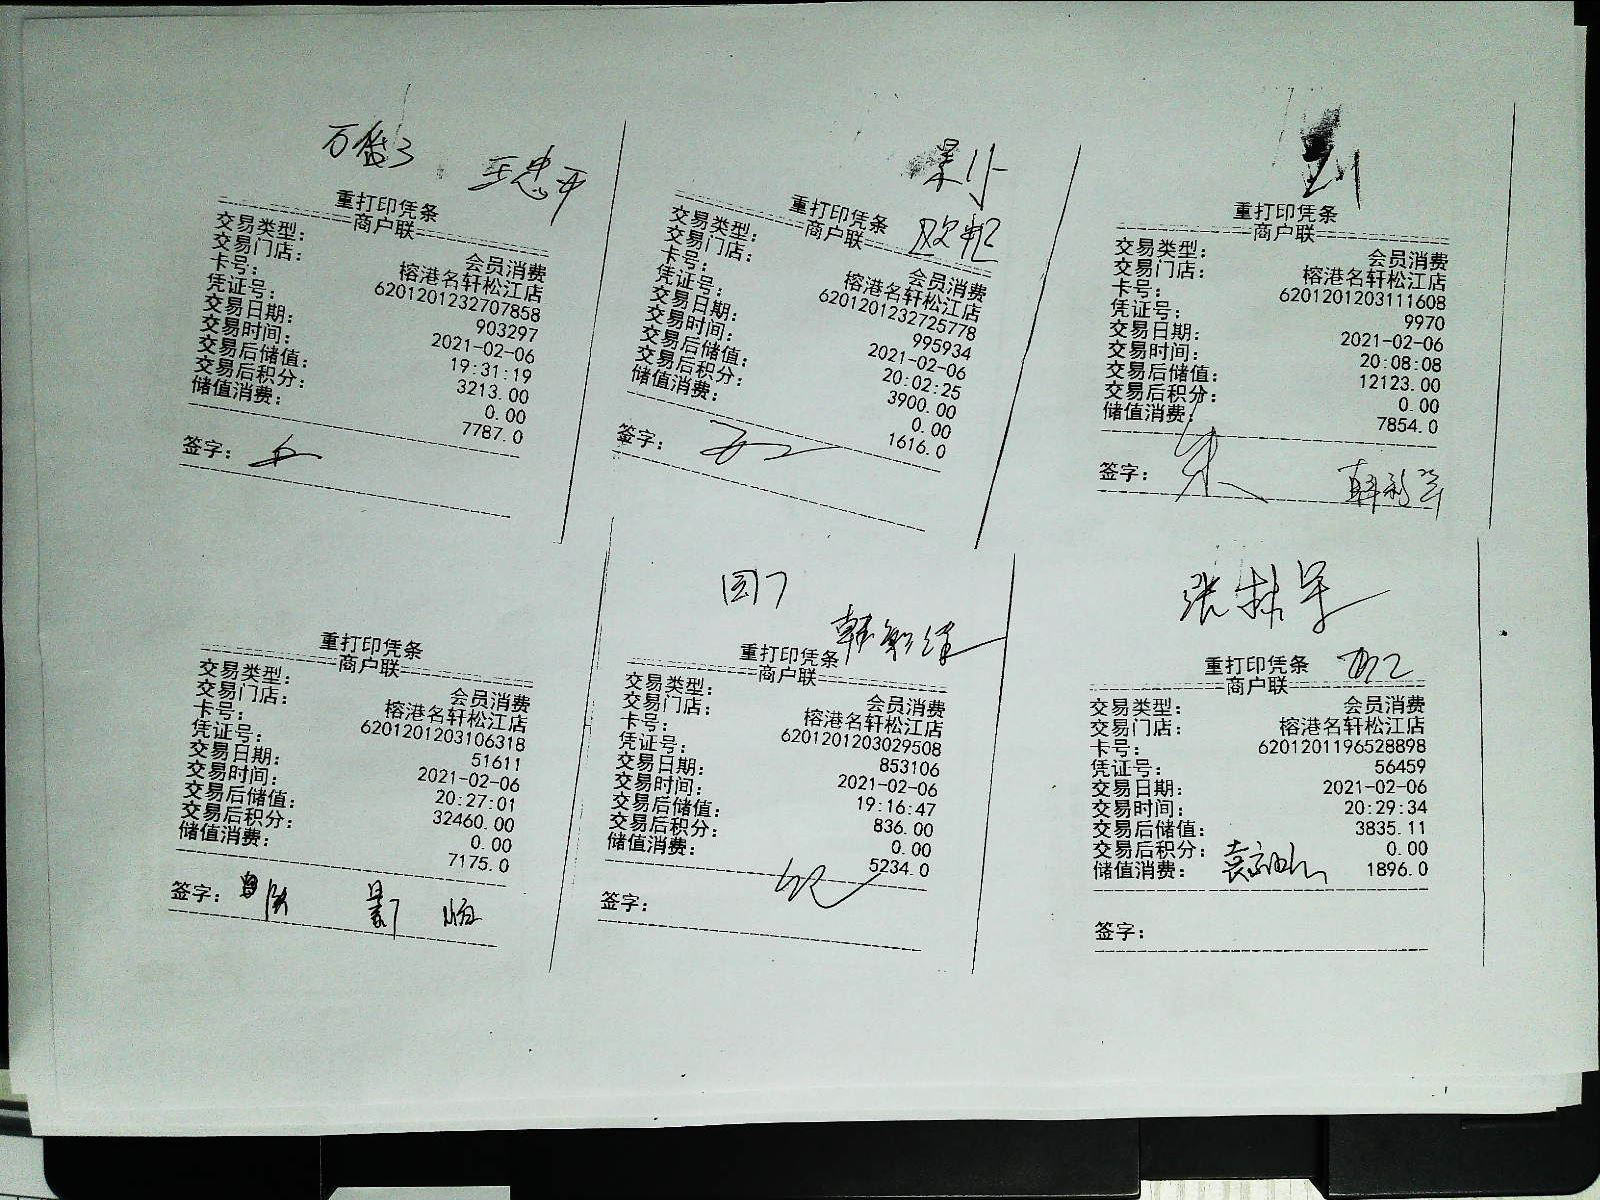 王忠开
重打印凭条
商户联
交易类型: 会员消费
交易门店: 榕港名轩松江店
卡号: 6201201232707858
凭证号: 903297
交易日期: 2021-02-06
交易时间: 19:31:19
交易后储值: 3213.00
交易后积分: 0.00
储值消费: 7787.0
签字:
重打印凭条
商户联
交易类型: 会员消费
交易门店: 榕港名轩松江店
卡号: 6201201232725778
凭证号: 995934
交易日期: 2021-02-06
交易时间: 20:02:25
交易后储值: 3900.00
交易后积分: 0.00
储值消费: 1616.0
签字:
重打印凭条
商户联
交易类型: 会员消费
交易门店: 榕港名轩松江店
卡号: 6201201203111608
凭证号: 9970
交易日期: 2021-02-06
交易时间: 20:08:08
交易后储值: 12123.00
交易后积分: 0.00
储值消费: 7854.0
签字: 朱
重打印凭条
商户联
交易类型: 会员消费
交易门店: 榕港名轩松江店
卡号: 6201201203106318
凭证号: 51611
交易日期: 2021-02-06
交易时间: 20:27:01
交易后储值: 32460.00
交易后积分: 0.00
储值消费: 7175.0
签字:
重打印凭条
商户联
交易类型: 会员消费
交易门店: 榕港名轩松江店
卡号: 6201201203029508
凭证号: 853106
交易日期: 2021-02-06
交易时间: 19:16:47
交易后储值: 836.00
交易后积分: 0.00
储值消费: 5234.0
签字:
重打印凭条
商户联
交易类型: 会员消费
交易门店: 榕港名轩松江店
卡号: 6201201196528898
凭证号: 56459
交易日期: 2021-02-06
交易时间: 20:29:34
交易后储值: 3835.11
交易后积分: 0.00
储值消费: 1896.0
签字: